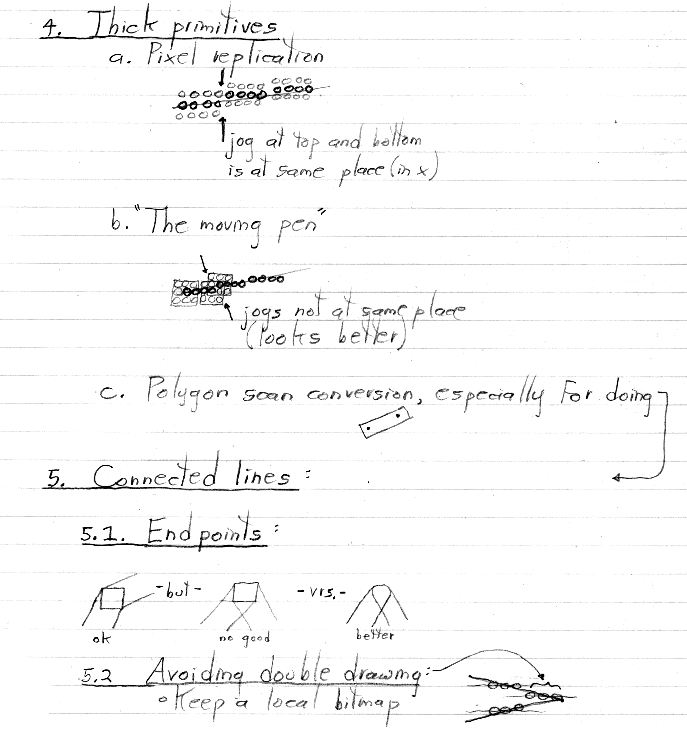 4. Thick primitives
a. Pixel replication
jog at top and bottom
is at same place (in x)
b. "The moving pen"
jogs not at same place
(looks better)
c. Polygon scan conversion, especially For doing
5. Connected lines:
5.1. Endpoints:
-but- -vrs.-
ok no good better
5.2 Avoiding double drawing:
• Keep a local bitmap